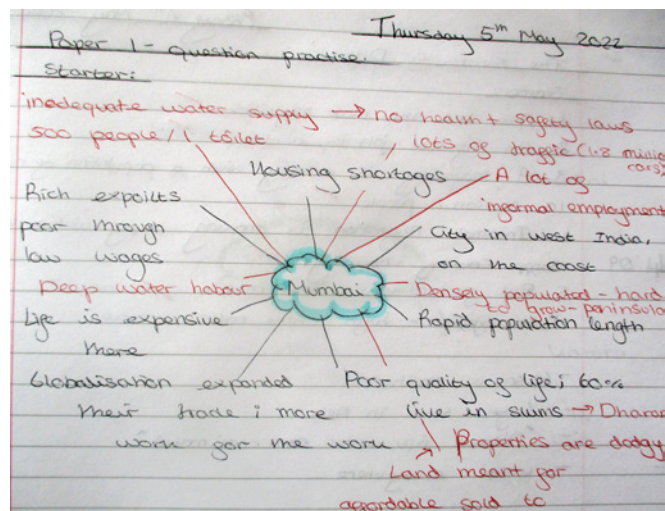 Thursday 5th May 2022
Paper 1 - question practise.
Starter:
inadequate water supply → no health + safety laws
500 people / 1 toilet
lots of traffic (1.8 million cars)
Housing shortages
A lot of
informal employment
Rich expoilts
poor through
low wages
City in west India,
on the coast
Deep water habour
Mumbai
Densely populated - hard
to grow - peninsula
Life is expensive
there
Rapid population length
Globalisation expanded
their trade; more
work for the work
Poor quality of life; 60%
live in slums → Dharav
Properties are dodgy
Land meant for
affordable sold to